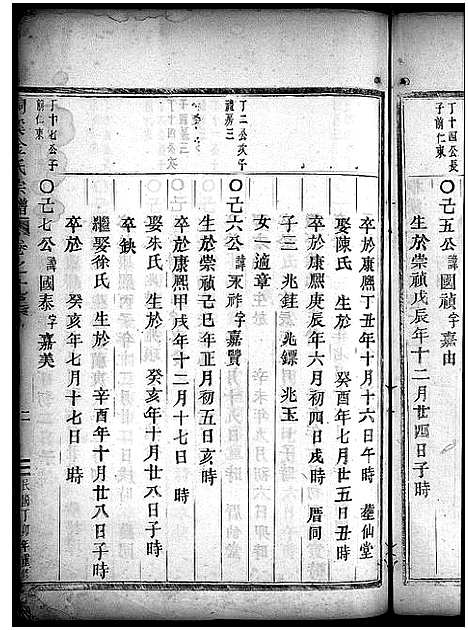 丁十四公長
子前仁東
〇己五公諱國禎字嘉由
生於崇禎戊辰年十二月廿四日子時
卒於康熙丁丑年十月十六日午時 葬仙堂
娶陳氏 生於 癸酉年七月廿五日丑時
卒於康熙庚辰年六月初四日戌時 厝同
子三 兆銈 兆鏢 兆玉
女一適章
丁二公亥子
禮房三
〇己六公諱永祚字嘉贊
生於崇禎己巳年正月初五日亥時
卒於康熙甲戌年十二月十七日 時
娶朱氏 生於 癸亥年十月廿八日子時
卒缺
繼娶徐氏 生於 辛酉年十月廿八日子時
卒於 癸亥年七月十七日 時
丁十七公子
前仁東
〇己七公諱國泰字嘉美
氏宗譜
二